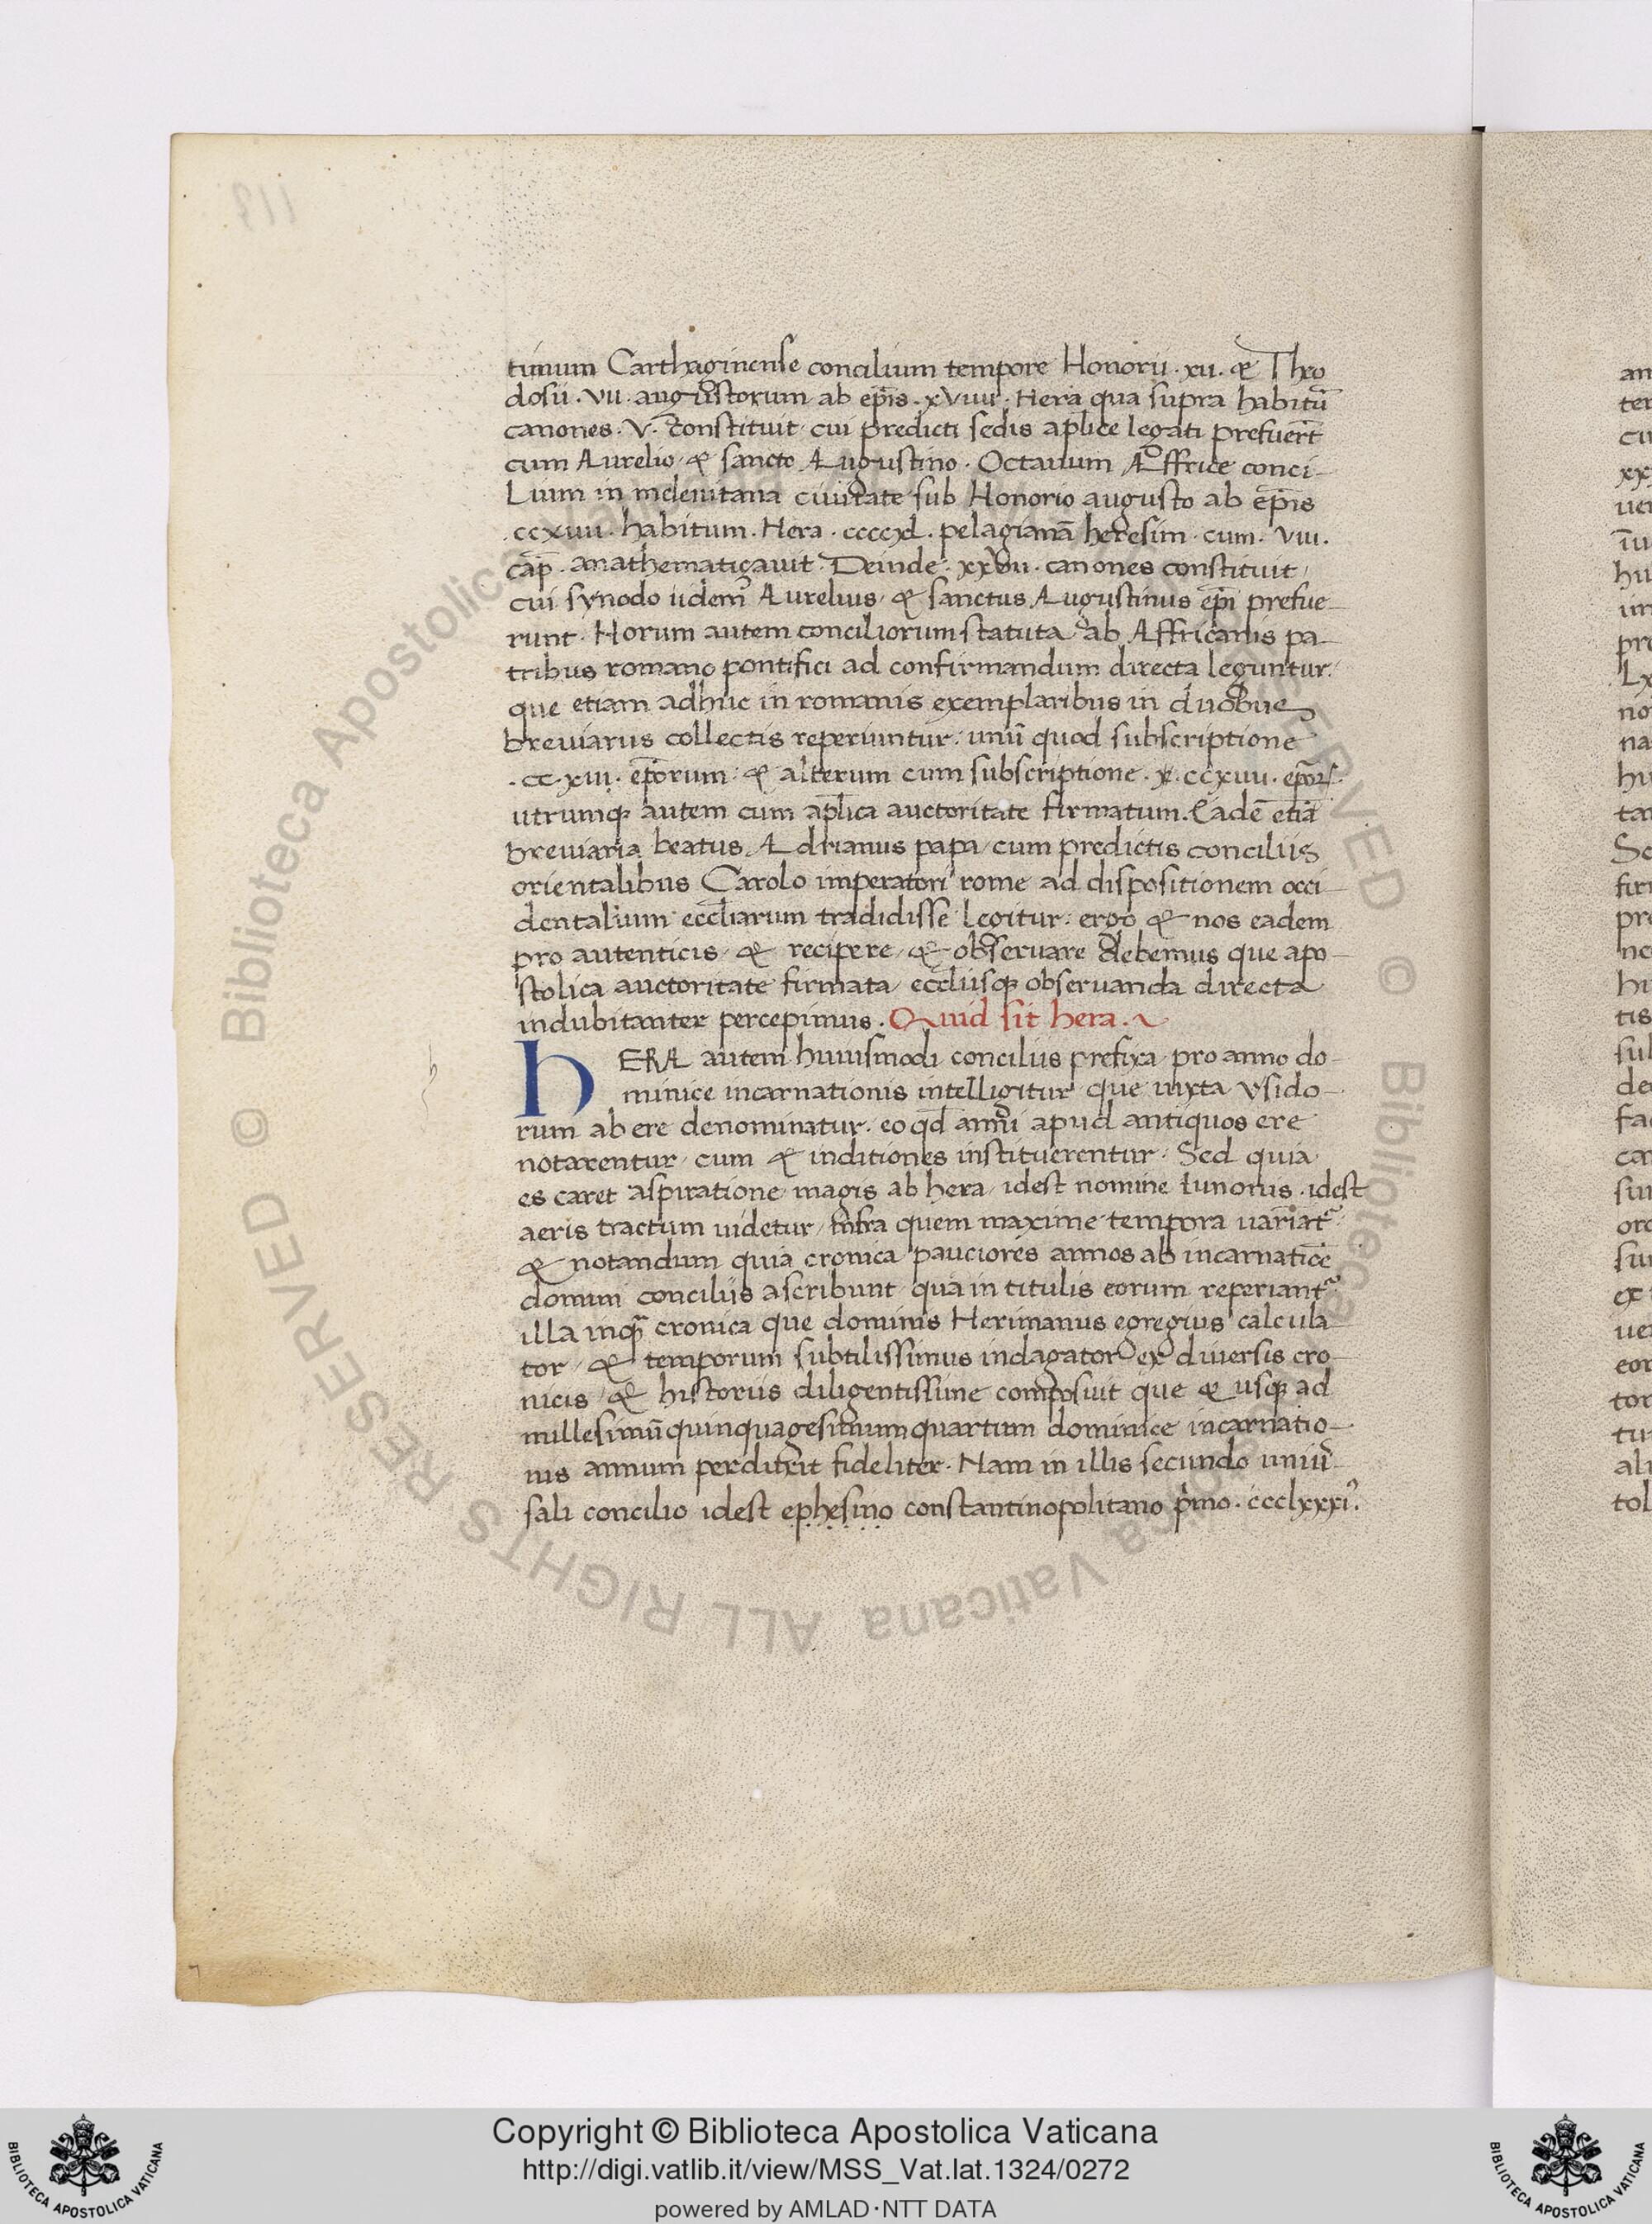 timum Carthaginense concilium tempore Honorii · xii · & Theo
dosii · VII · augustorum ab ep̄is · xViiii · Hera qua supra habitū
canones · V · constituit cui predicti sedis aplice legati prefuer̄t
cum Aurelio & sancto Augustino · Octauum Affrice conci-
Lium in meleuitana ciuitate sub Honorio augusto ab ep̄is
· ccxiiii · habitum · Hera · ccccxl · pelagianā heresim · cum · VIII ·
cap̄ · anathematiçauit · Deinde · xxVii · canones constituit
cui synodo iidem Aurelius & sanctus Augustinus ep̄i prefue-
runt · Horum autem conciliorum statuta ab Affricanis pa-
tribus romano pontifici ad confirmandum directa leguntur ·
que etiam adhuc in romanis exemplaribus in duobus
breuiariis collectis reperiuntur · unū quod subscriptione
· cc · xiii · ep̄orum · & alterum cum subscriptione · ccxiiii ·
utrumq; autem cum aplica auctoritate firmatum. Eadē etiā
breuiaria beatus Adrianus papa cum predictis conciliis
orientalibus Carolo imperatori rome ad dispositionem occi-
dentalium eccl̄iarum tradidisse legitur · ergo & nos eadem
pro autenticis & recipere & obseruare debemus que apo-
stolica auctoritate firmata eccl̄iisq; obseruanda directa
indubitanter percepimus · Quid sit hera ·
hERA autem huiusmodi conciliis prefixa pro anno do-
minice incarnationis intelligitur que iuxta ysido-
rum ab ere denominatur · eo qd̄ anni apud antiquos ere
notarentur cum & inditiones instituerentur · Sed quia
es caret aspiratione magis ab hera idest nomine iunonis · idest
aeris tractum uidetur infra quem maxime tempora uariant̄
& notandum quia cronica pauciores annos ab incarnatiōe
domini conciliis ascribunt qua in titulis eorum reperiant̄ ·
illa inq̄ cronica que dominis Herimanus egregius calcula
tor & temporum subtilissimus indagator ex diuersis cro-
nicis & historiis diligentissime composuit que & usq; ad
millesimū quinquagesimum quartum dominice incarnatio-
nis annum fideliter · Nam in illis secundo uniū
sali concilio idest ephesino constantinopolitano p̄mo · ccclxxxi ·
an
ter
cu
xx
uer
hu
pre
Lx
no
na
hu
tar
Sc
firr
pre
hi
tis
sul
de
fac
car
ord
su
ex
uer
eor
tor
tu
ali
tol
© Biblioteca Apostolica Vaticana ALL RIGHTS RESERVED
© Biblioteca Apostolica Vaticana
BIBLIOTECA APOSTOLICA VATICANA
Copyright © Biblioteca Apostolica Vaticana
http://digi.vatlib.it/view/MSS_Vat.lat.1324/0272
powered by AMLAD·NTT DATA
BIBLIOTECA APOSTOLICA VATICANA